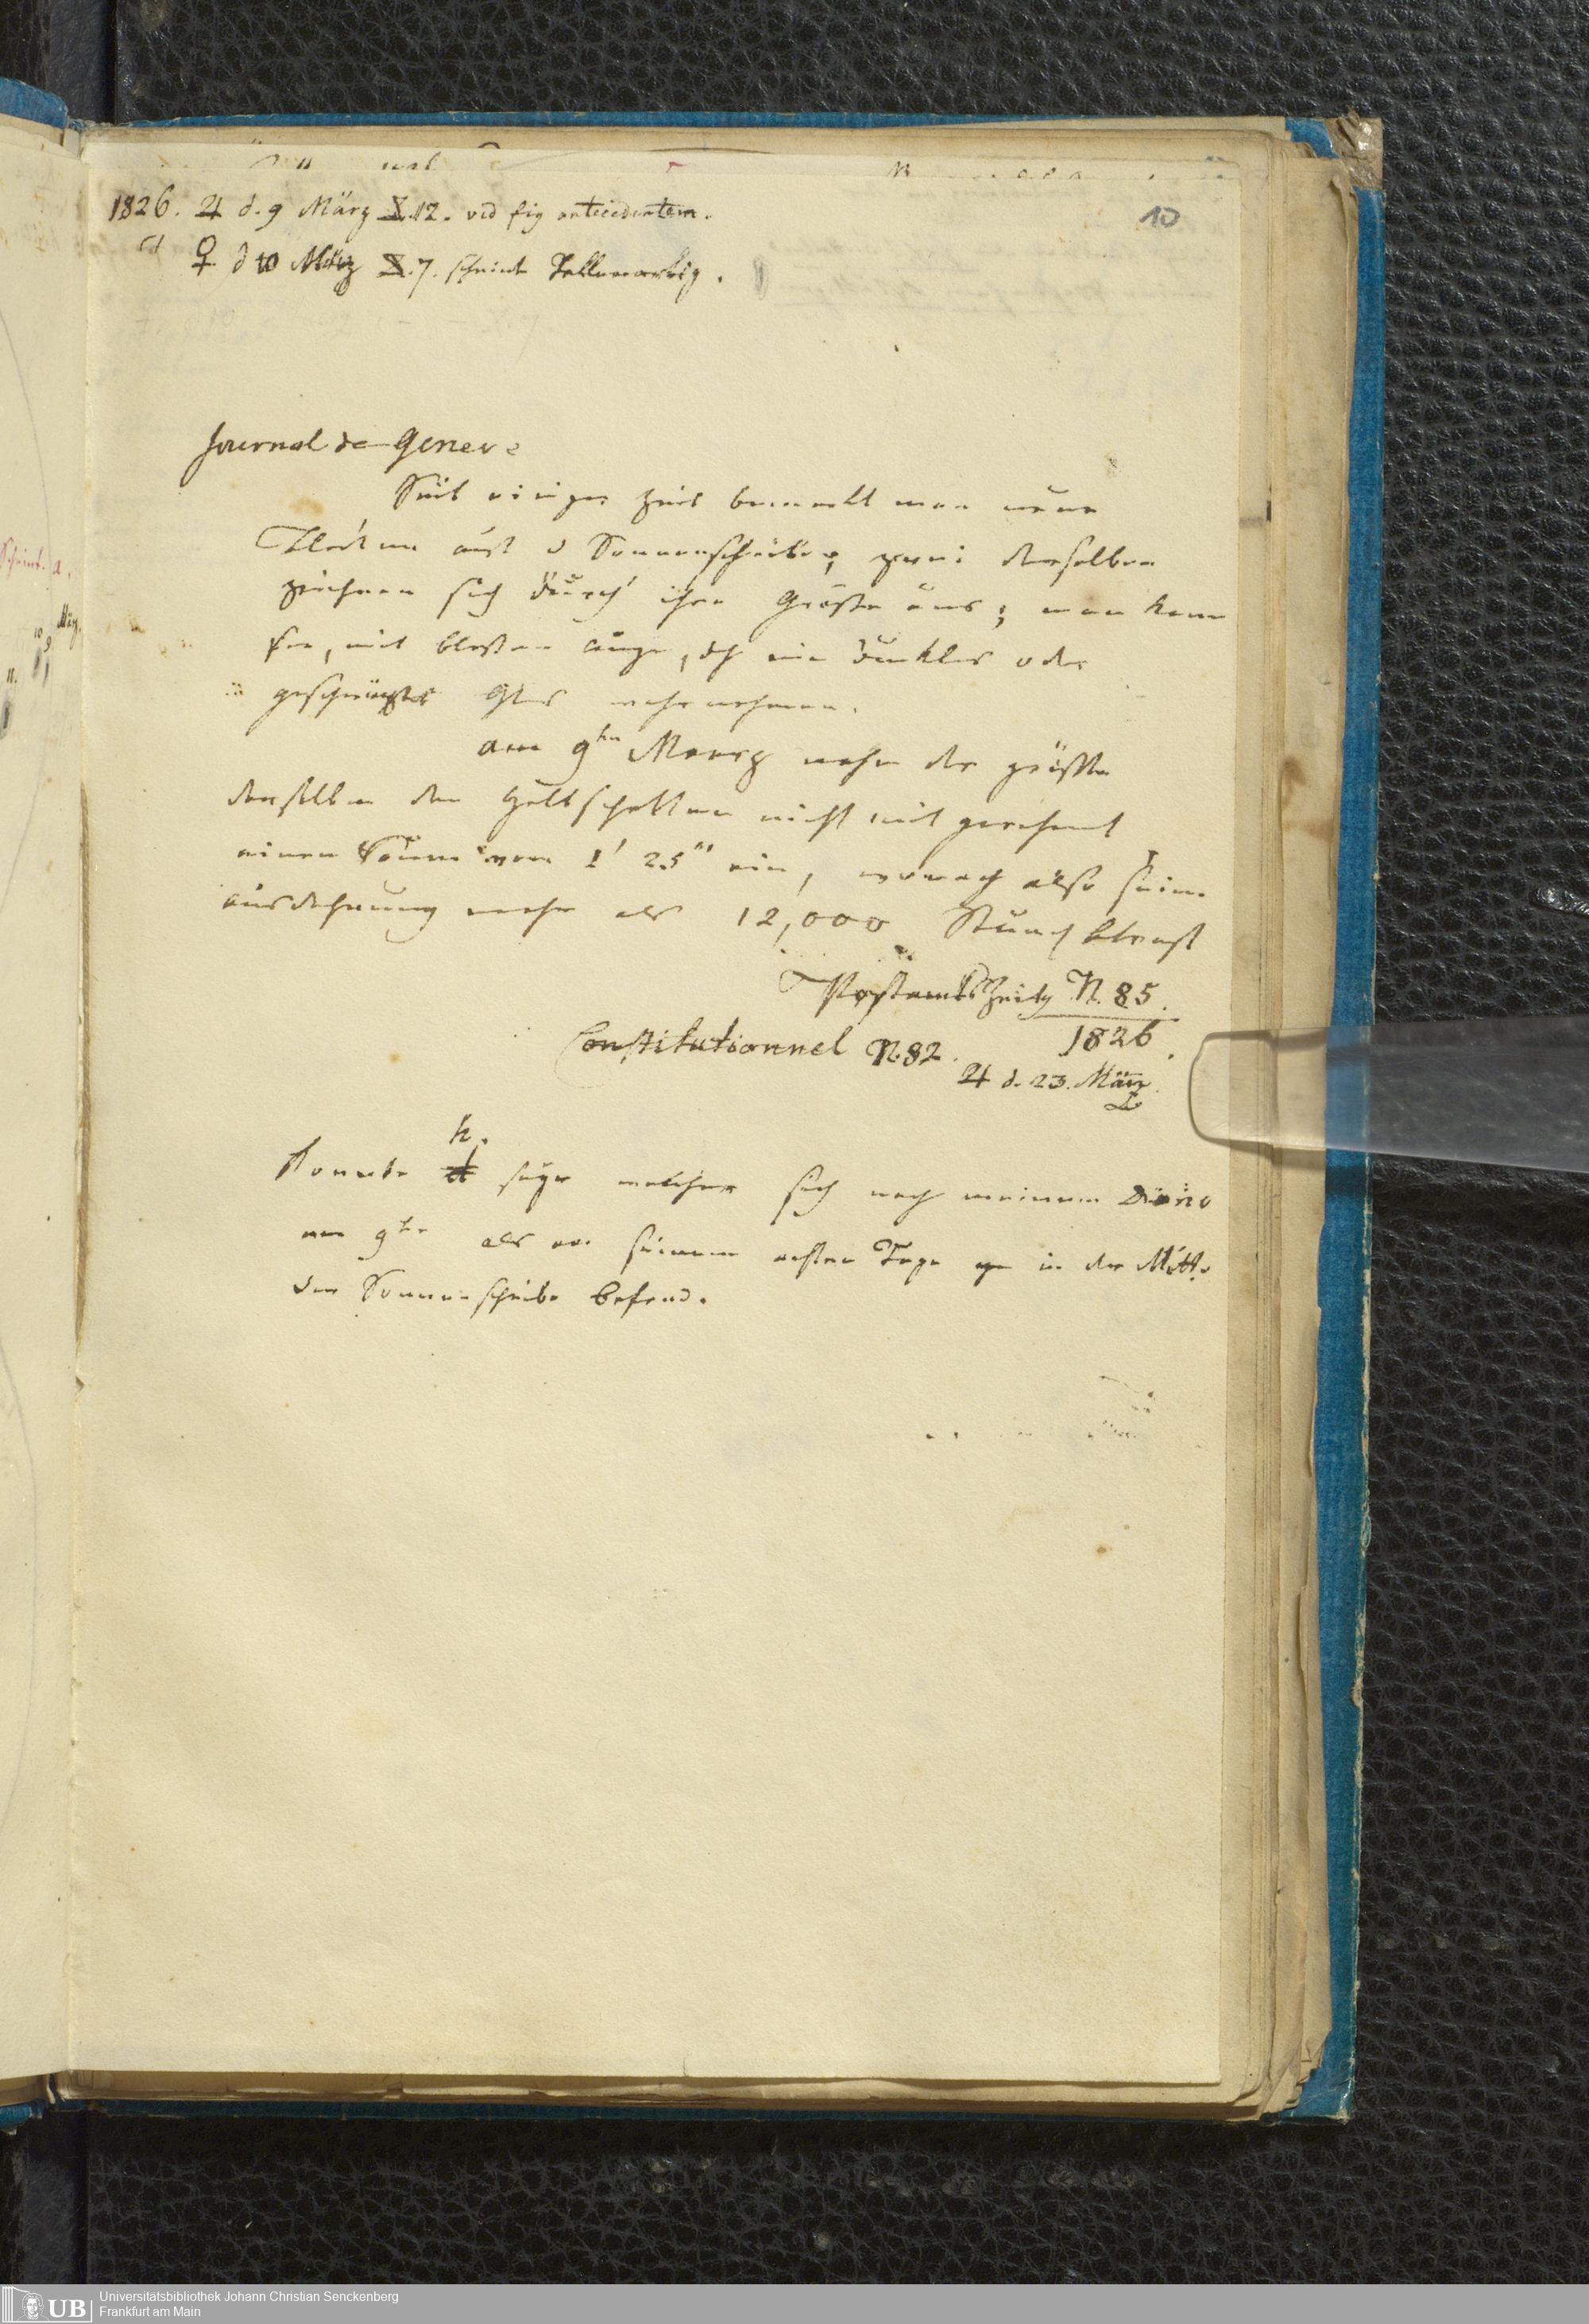 1826. ♃ d. 9 März X.12. vid fig antecedentem.
10
id ♀ d 10 März X.7. scheint
Journal de Geneve
Seit einiger Zeit bemerkt man neue
Flecken auf d Sonnenscheibe, zwei derselben
zeichnen sich durch ihre Größe aus; man kann
sie, mit bloßem Auge, dh ein dunkles oder
geschwärztes Glas wahrnehmen.
am 9ten Maerz nahm der größte
derselben den Halbschatten nicht mit gerechnet
einen Raum von 1' 25" ein, wonach also seine
Ausdehnung mehr als 12,000 Stund beträgt
Postamts Zeitg N. 85.
1826.
Constitutionnel N. 82.
♃ d. 23. März
h.
sich nach meinem
am 9ten als an seinem 7ten Tage in der Mitte
der Sonnenscheibe befand.
Scheint. a.
März.
10
9
11.
Universitätsbibliothek Johann Christian Senckenberg
Frankfurt am Main
UB